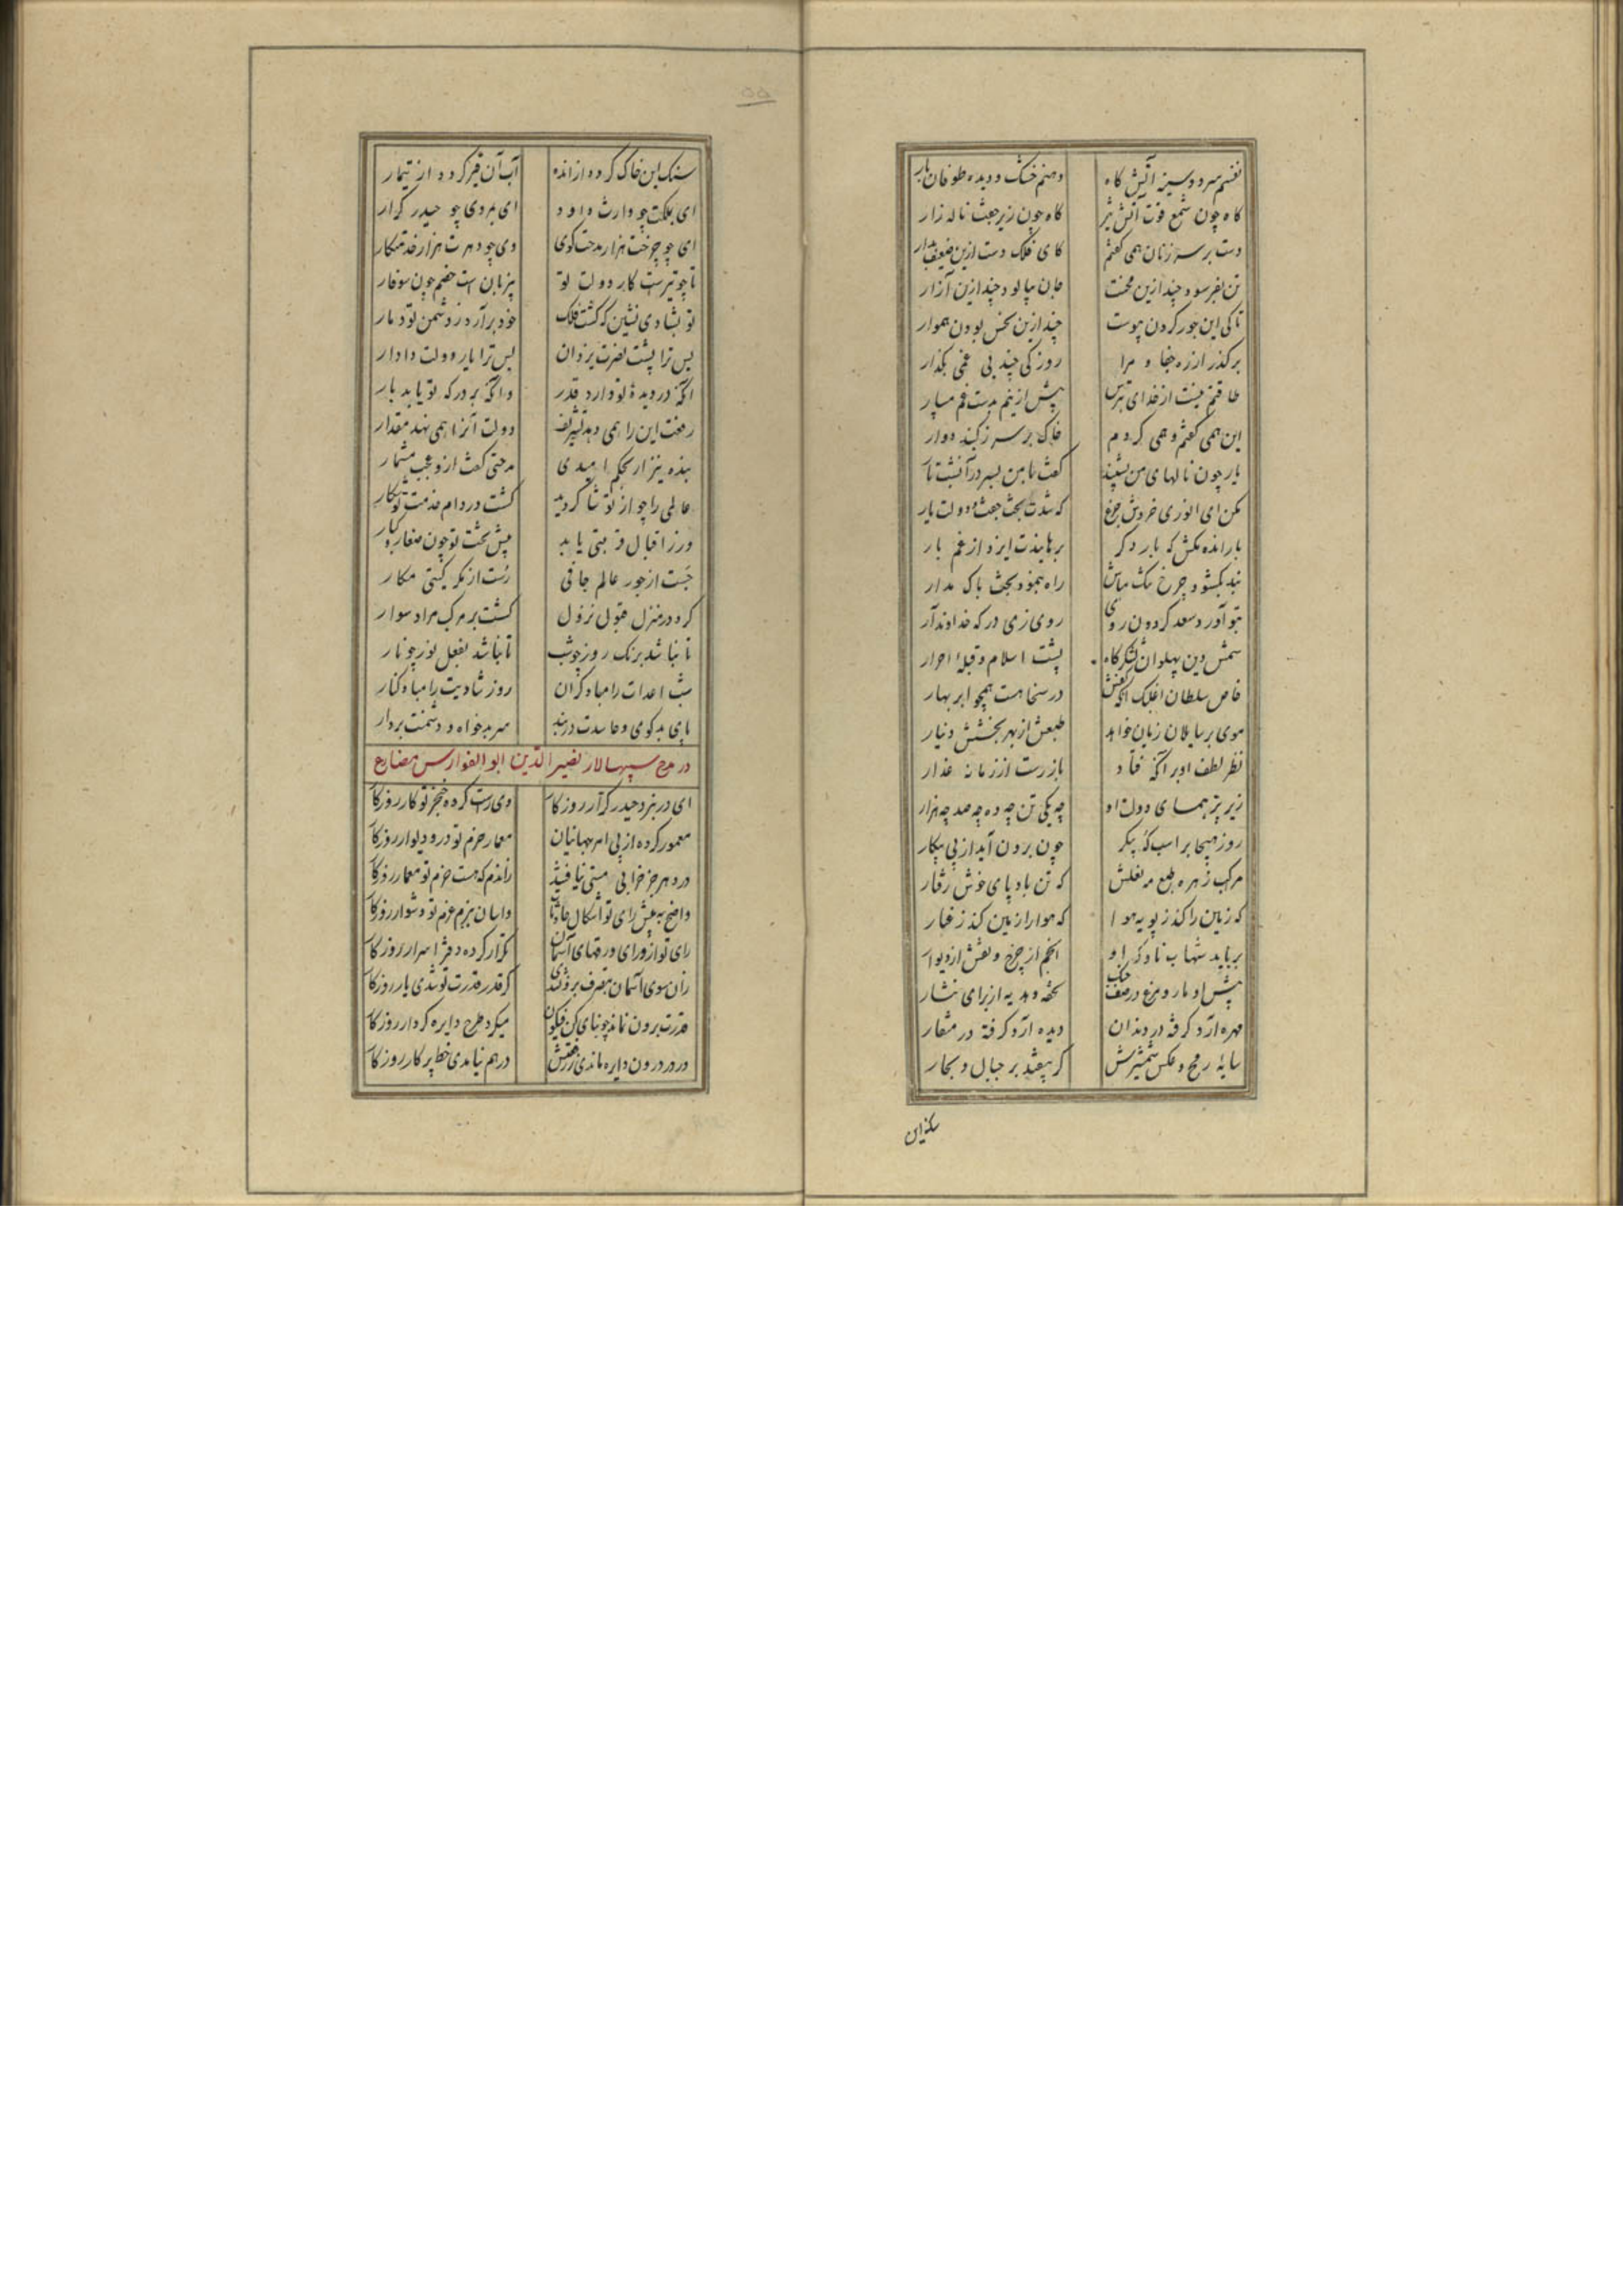 نفسم سرد و سینه آتش کاه دهنم خشک و دیده طوفان بار
کاه چون شمع قوت آتش تیز کاه چون زیر جفت ناله زار
دست بر سر زنان همی کفتم کای فلک دست ازین ضعیف بدار
تن بفرسود چند ازین محنت جان بپالود چند ازین آزار
تا کی این جور کردن پیوست چند ازین نحس بودن هموار
برکذر از ره جفا و مرا روزکی چند بی غمی بکذار
طاقتم نیست از خدای بترس پیش ازینم بدست غم مسپار
این همی کفتم و همی کردم خاک بر سر ز کنبد دوار
یار چون نالهای من بشنید کفت با من بسر در آنشب تار
مکن ای انوری خروش و جزع که شدت بخت جفت و دولت یار
بار انده مکش که بار دکر برهاندت ایزد از غم بار
بند بکشود چرخ تنک مباش راه بنمود بخت باک مدار
بتو آورد سعد کردون روی روی زی درکه خداوند آر
شمس دین پهلوان لشکرکاه پشت اسلام و قبله احرار
خاص سلطان اغلبک آنکه کفش در سخا هست همچو ابر بهار
موی بر سایلان زبان خواهد طبعش از بهر بخشش دینار
نظر لطف او بر آنکه فتاد باز رست از زمانه غدار
زیر پر همای دولت او چه یکی تن چه ده چه صد چه هزار
روز هیجا بر اسب که پیکر چون برون آید از پی پیکار
مرکب زهره طبع مه نعلش که تن باد پای خوش رفتار
که زمین را کند ز پویه هوا که هوا را زمین کند ز غبار
برباید شهاب ناوک او انجم از چرخ و نقش از دیوار
پیش او مار و مرغ در صف جنک تحفه و هدیه از برای نثار
مهره آرد کرفته در دندان دیده آرد کرفته در منقار
سایه رمح و عکس شمشیرش کر بیفتد بر جبال و بحار
سنک این
سنک این خاک کردد از انده آب آن قیر کردد از تیمار
ای بملکت چو وارث داود ای بمردی چو حیدر کرار
ای چو چرخت هزار مدحت کوی وی چو دهرت هزار خدمتکار
تا چو تیرست کار دولت تو پر زبان است خصم چون سوفار
تو بشادی نشین که کشت فلک خود برآرد ز دشمن تو دمار
بس ترا پشت نصرت یزدان بس ترا یار دولت دادار
آنکه در دیده تو دارد قدر وانکه بر درکه تو یابد بار
رفعت این را همی دهد تشریف دولت آنرا همی نهد مقدار
بنده نیز ار بحکم امیدی مدحتی کفت ازو عجب مشمار
عالمی را چو از تو شاکر دید کشت در دام خدمت تو شکار
ورز اقبال قربتی یابد پیش تخت تو چون صغار و کبار
جست از جور عالم جافی رست از مکر کیتی مکار
کرد در منزل قبول نزول کشت بر مرکب مراد سوار
تا نباشد برنک روز چو شب تا نباشد بفعل نور چو نار
شب اعدات را مباد کران روز شادیت را مباد کنار
پای بدکوی و حاسدت در بند سر بدخواه و دشمنت بر دار
در مدح سپهسالار نصیر الدین ابو الفوارس مضارع
ای در نبرد حیدر کرار روزکار وی راست کرده خنجر تو کار روزکار
معمور کرده از پی امن جهانیان معمار حزم تو در و دیوار روزکار
در دهر جز خرابی مستی نیافتند زاندم که هست حزم تو معمار روزکار
واضح به پیش رای تو اشکال حادثات و آسان بنزم عزم تو دشوار روزکار
رای تو از ورای ورقهای آسمان تکرار کرده دفتر اسرار روزکار
زان سوی آسمان بتصرف برون شدی کر قدر و قدرت تو شدی یار روزکار
قدرت برون نماند چو بنای کن فیکون میکرد طرح دایره کردار روزکار
ور در درون دایره ماندی ز رفعتش در هم نیامدی خط پرکار روزکار